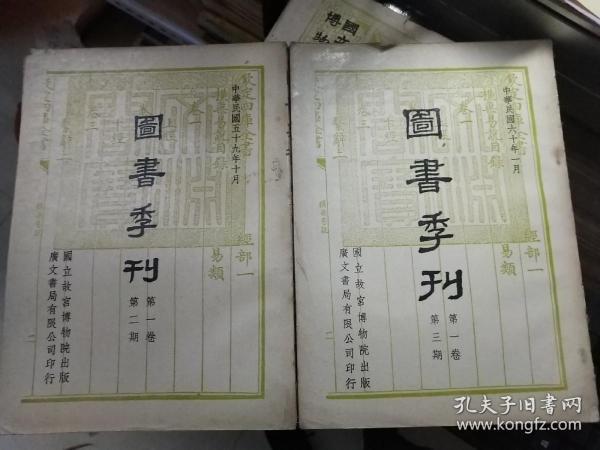 國
博
物
中華民國五十九年十月
圖書季刊
第一卷
第二期
國立故宮博物院出版
廣文書局有限公司印行
欽定四庫全書
經部一
易類
二
中華民國六十年一月
圖書季刊
第一卷
第三期
國立故宮博物院出版
廣文書局有限公司印行
欽定四庫全書
目錄
卷一
經部一
易類
二
孔夫子旧书网
www.kongfz.com